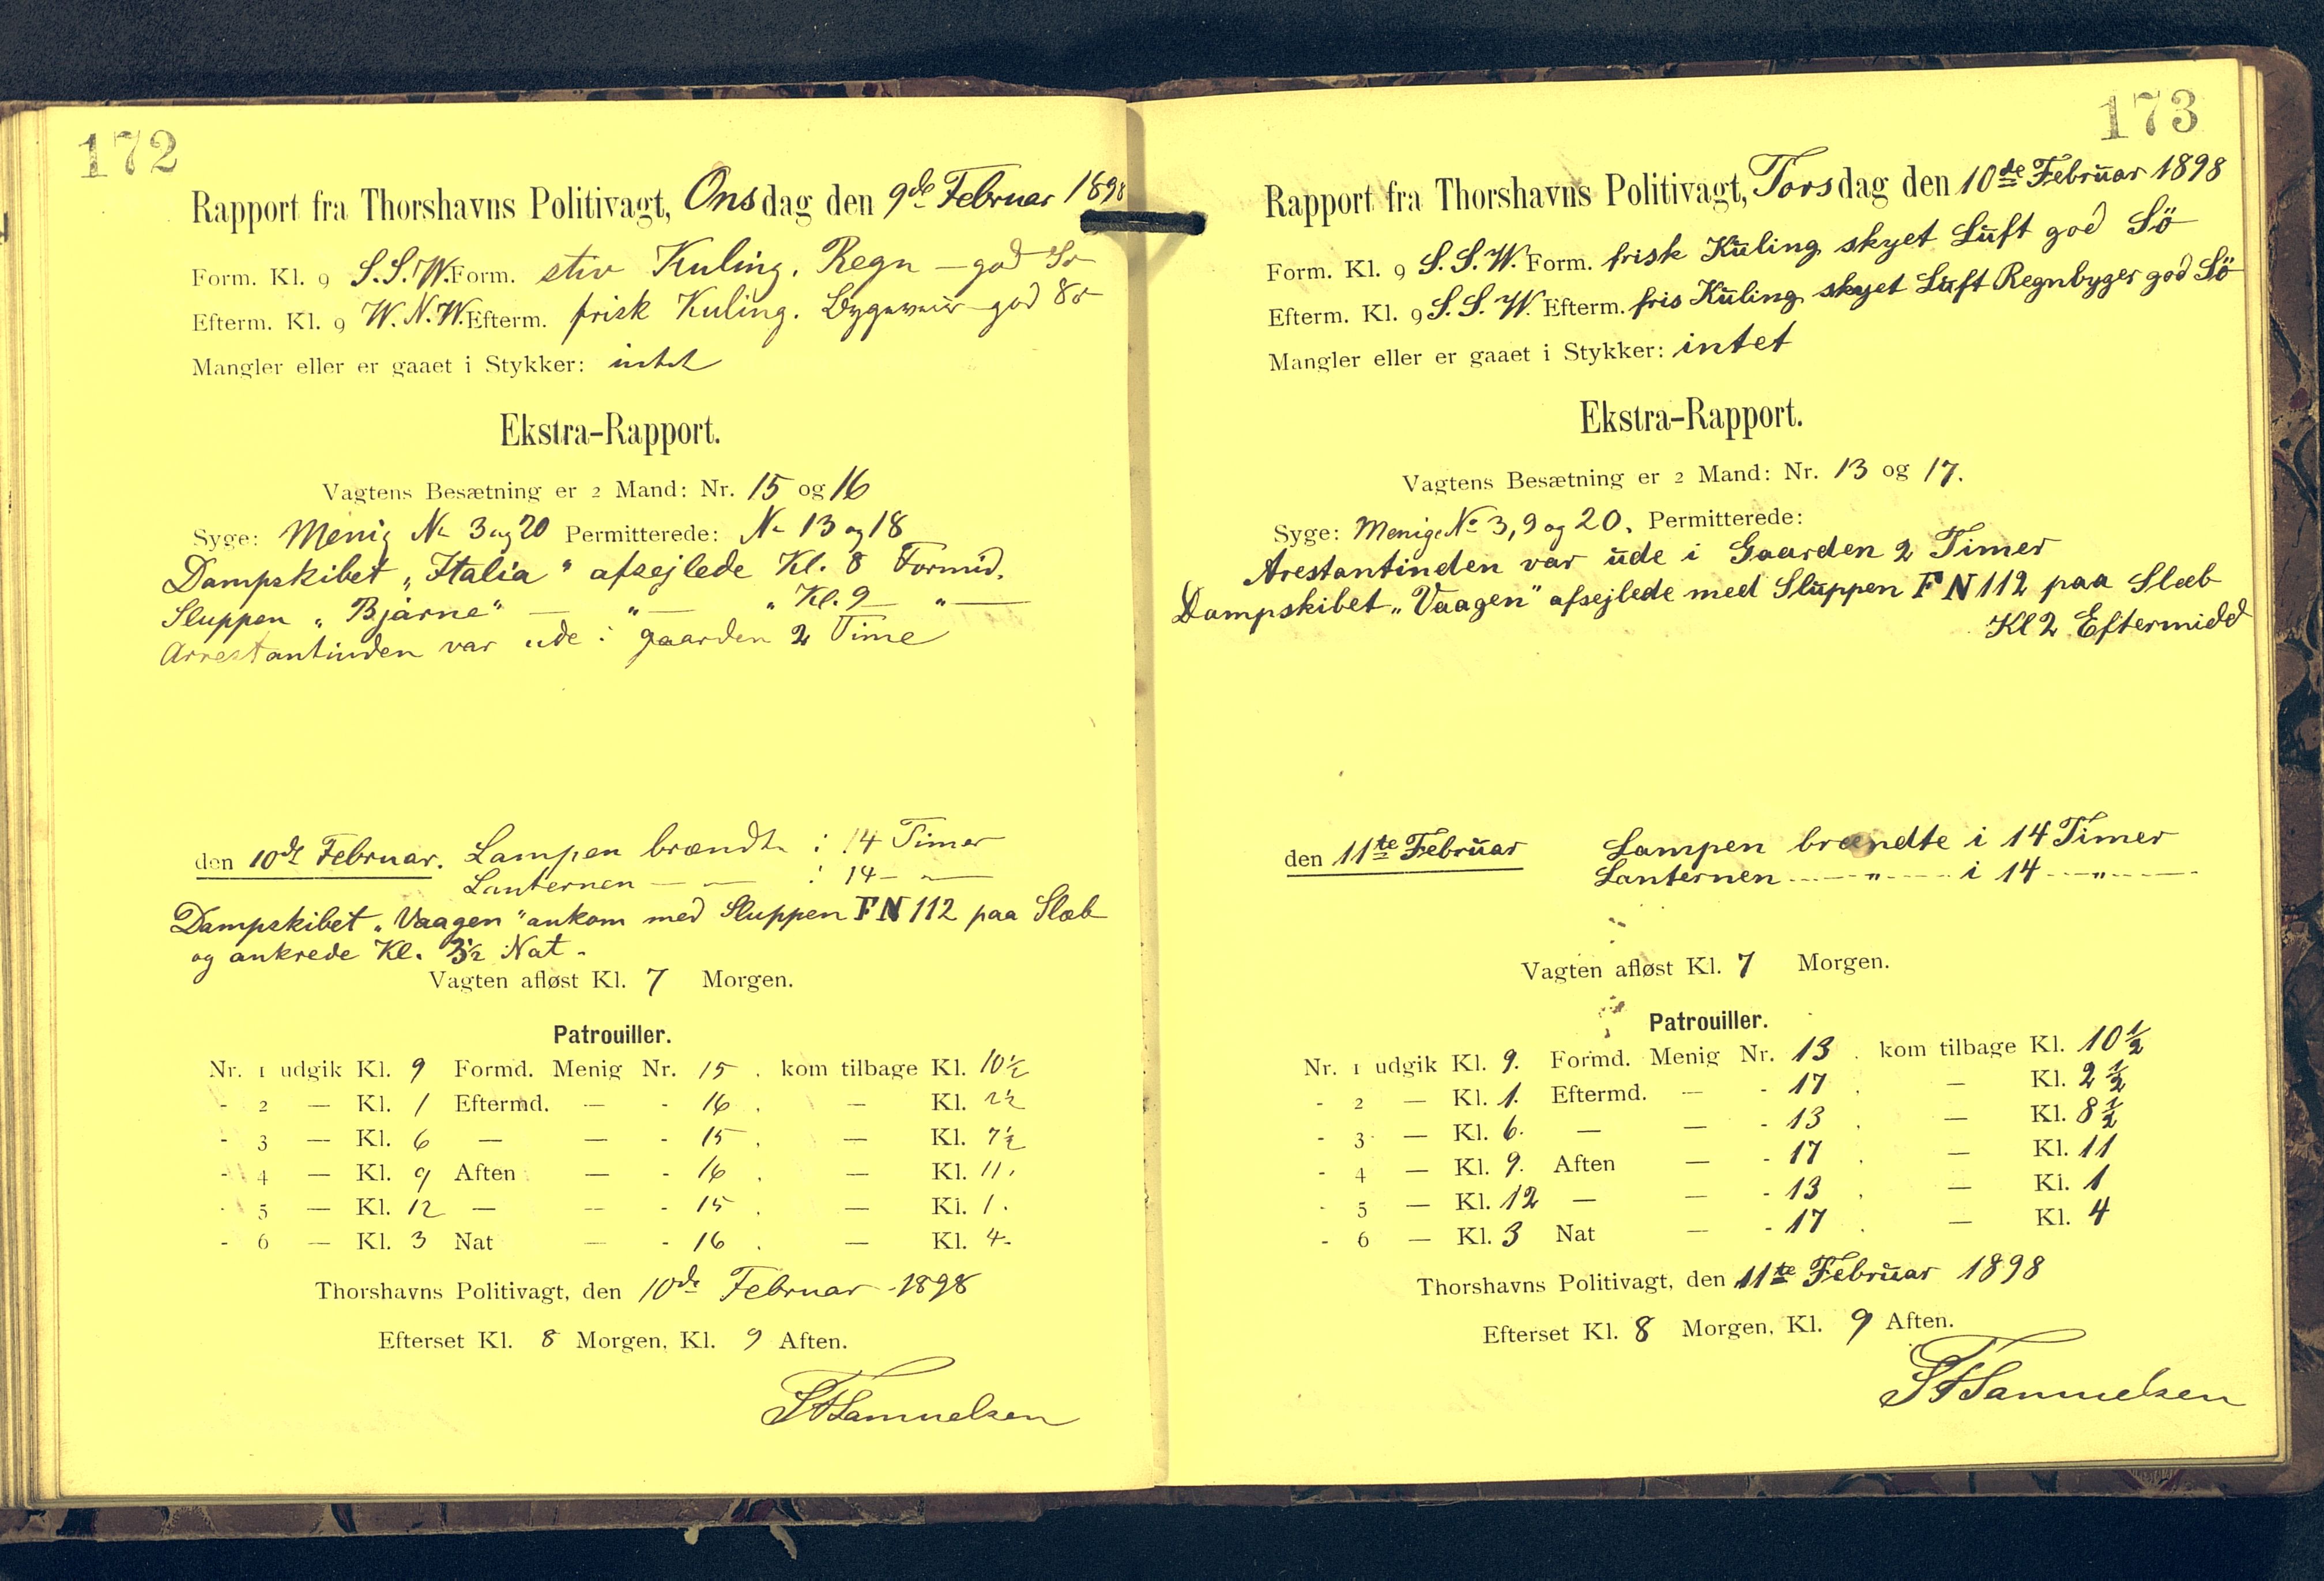 172
Rapport fra Thorshavns Politivagt, Onsdag den 9de Februar 1898
Form. Kl. 9 S.S.W. Form. stiv Kuling. Regn – god Sø
Efterm. Kl. 9 W.N.W. Efterm. frisk Kuling. Bygeveir – god Sø
Mangler eller er gaaet i Stykker: intet
Ekstra-Rapport.
Vagtens Besætning er 2 Mand: Nr. 15 og 16
Syge: Menig No 3 og 20 Permitterede: No 13 og 18
Dampskibet „Italia" afsejlede Kl. 8 Formid.
Sluppen „Bjarne" — „ — „ Kl. 9 — „ —
Arrestantinden var ude i gaarden 2 Time
den 10de Februar. Lampen brændte i 14 Timer
Lanternen — — i 14 – „ —
Dampskibet „Vaagen" ankom med Sluppen FN 112 paa Slæb
og ankrede Kl. 3½ Nat.
Vagten afløst Kl. 7 Morgen.
Patrouiller.
Nr. 1 udgik Kl. 9 Formd. Menig Nr. 15. kom tilbage Kl. 10½
- 2 — Kl. 1 Eftermd. — - 16. — Kl. 2½
- 3 — Kl. 6 — — - 15. — Kl. 7½
- 4 — Kl. 9 Aften — - 16. — Kl. 11.
- 5 — Kl. 12 — — - 15. — Kl. 1.
- 6 — Kl. 3 Nat — - 16. — Kl. 4.
Thorshavns Politivagt, den 10de Februar 1898
Efterset Kl. 8 Morgen, Kl. 9 Aften.
Samuelsen
173
Rapport fra Thorshavns Politivagt, Torsdag den 10de Februar 1898
Form. Kl. 9 S.S.W. Form. frisk Kuling skyet Luft god Sö
Efterm. Kl. 9 S.S.W. Efterm. fris Kuling skyet Luft Regnbyger god Sö
Mangler eller er gaaet i Stykker: intet
Ekstra-Rapport.
Vagtens Besætning er 2 Mand: Nr. 13 og 17.
Syge: Menige No 3, 9 og 20. Permitterede:
Arestantinden var ude i Gaarden 2 Timer
Dampskibet „Vaagen" afsejlede med Sluppen FN 112 paa Slæb
Kl 2 Eftermidd
den 11te Februar Lampen brændte i 14 Timer
Lanternen — „ — i 14 — „ —
Vagten afløst Kl. 7 Morgen.
Patrouiller.
Nr. 1 udgik Kl. 9. Formd. Menig Nr. 13. kom tilbage Kl. 10½
- 2 — Kl. 1. Eftermd. — - 17. — Kl. 2½
- 3 — Kl. 6. — — - 13. — Kl. 8½
- 4 — Kl. 9. Aften — - 17. — Kl. 11
- 5 — Kl. 12 — — - 13. — Kl. 1
- 6 — Kl. 3 Nat — - 17. — Kl. 4
Thorshavns Politivagt, den 11te Februar 1898
Efterset Kl. 8 Morgen, Kl. 9 Aften.
Samuelsen